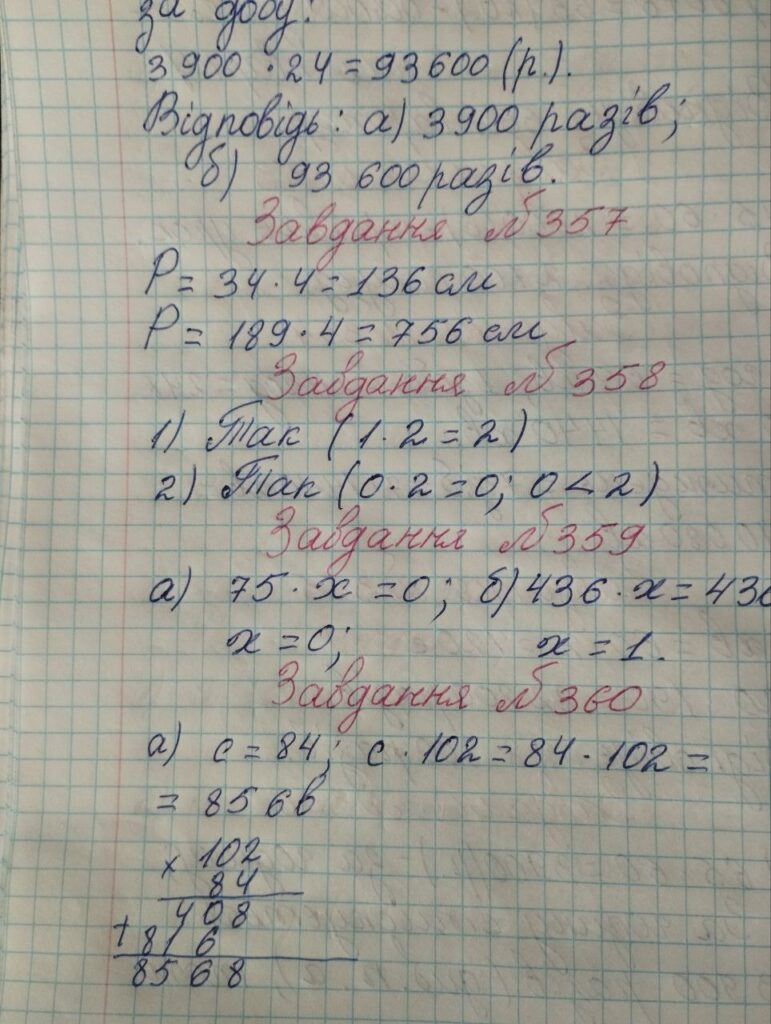 за добу:
3 900 · 24 = 93 600 (р.).
Відповідь: а) 3 900 разів;
б) 93 600 разів.
Завдання № 357
P = 34 · 4 = 136 см
P = 189 · 4 = 756 см
Завдання № 358
1) Так (1 · 2 = 2)
2) Так (0 · 2 = 0; 0 < 2)
Завдання № 359
а) 75 · x = 0; б) 436 · x = 436
x = 0; x = 1.
Завдання № 360
а) c = 84; c · 102 = 84 · 102 =
= 8568
× 102
84
408
+ 816
8568